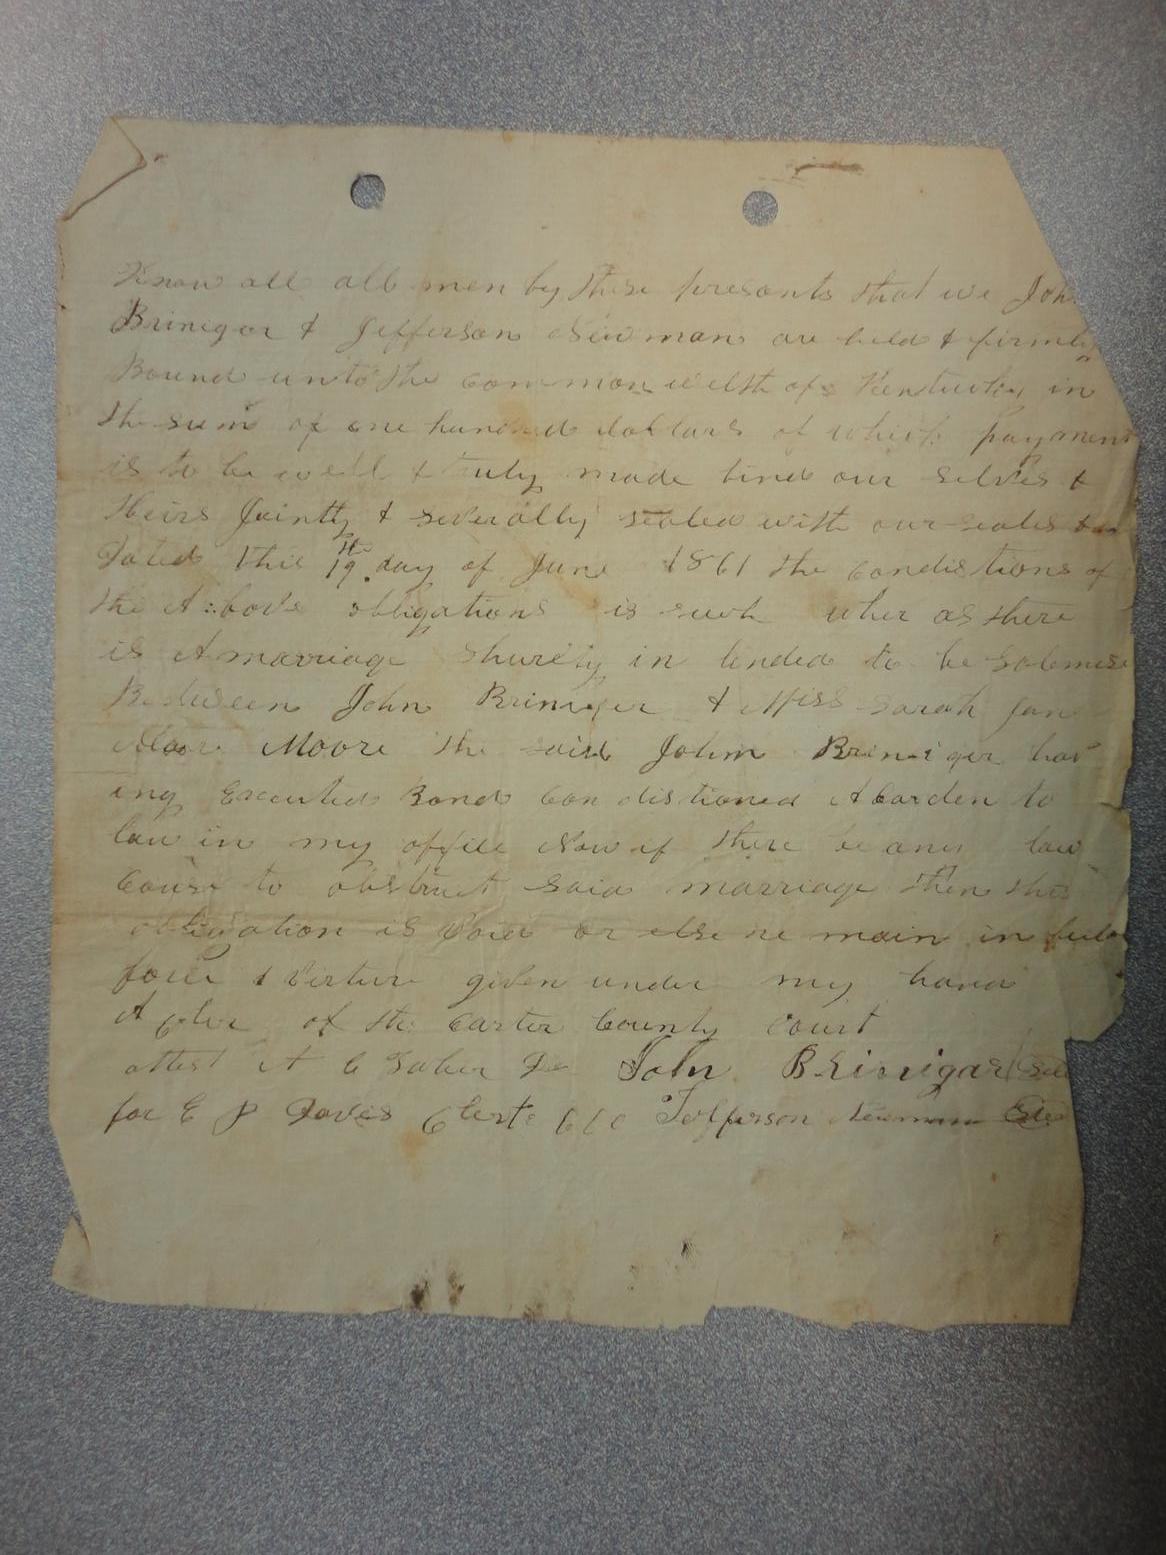 Know all all men by these presants that we Joh
Brinegar & Jefferson Newman are held & firmly
Bound unto the common welth of Kentucky in
the sum of one hundred dollars of which payment
is to be well & truly made bind our selves &
theirs Jointly & severally sealed with our seales
Dated this 19th day of June 1861 the condistions of
the A:bove obligations is such wher as there
is A marriage shurely in tended to be Solemise
Between John Briniger & Miss Sarah Jan
Moore the said John Briniger hav
ing Executed Bond Condistioned Acorden to
law in my office Now if there be any law
cause to obstruct said marriage then this
obligation is Void or else re main in full
force & Virture given under my hand
A of the Carter County Court
attest A C John Brinigar
for E P Davis Clerk C C C Jefferson Newman